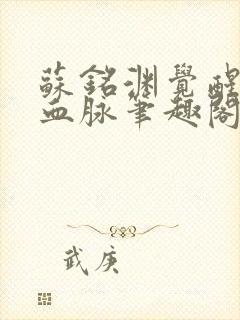 蘇銘淵覺醒
血脈筆趣閣
武庚